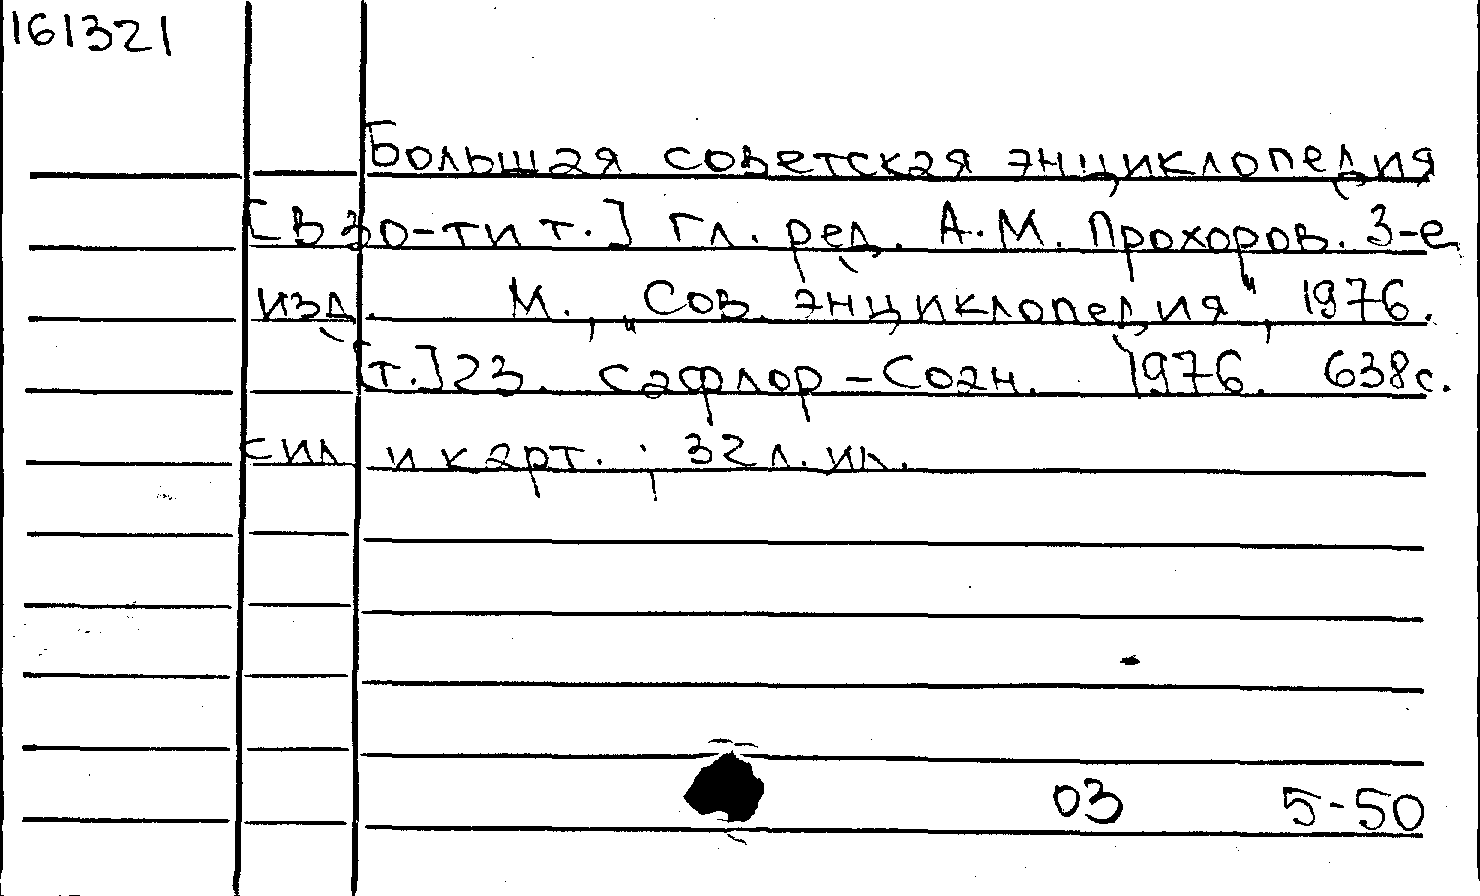 161321
Большая советская энциклопедия
[в 30-ти т.] гл. ред. А.М. Прохоров. 3-е
изд. М., „Сов. энциклопедия", 1976.
[т.] 23. Сафлор - Соан. 1976. 638с.
с ил и карт. ; 32 л. ил.
03 5-50